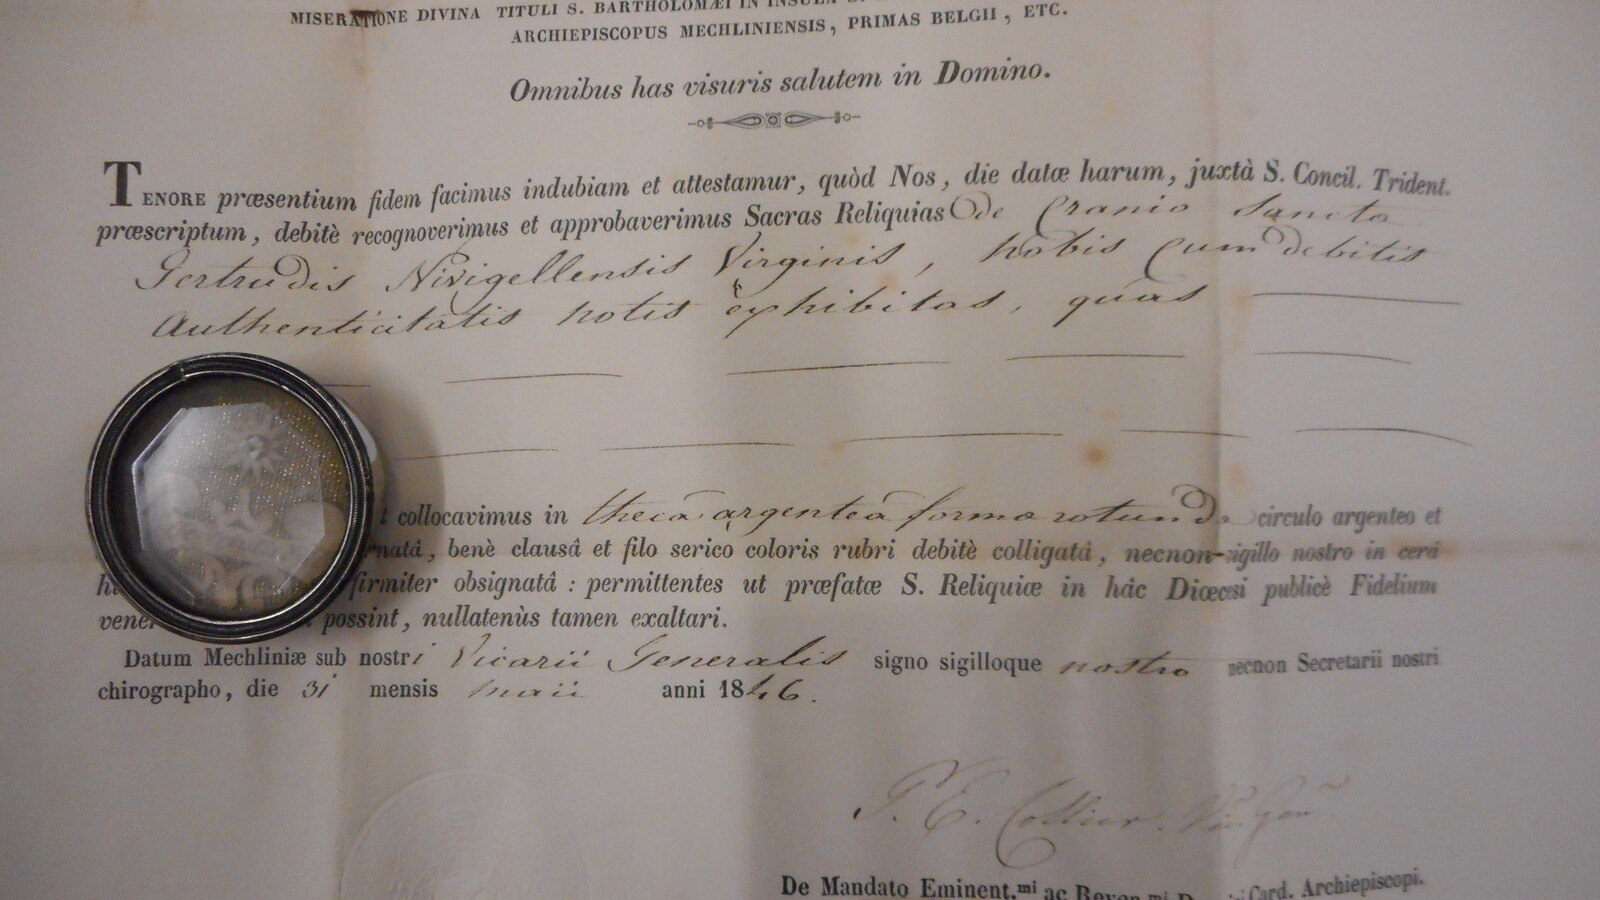 MISERATIONE DIVINA TITULI S. BARTHOLOMÆI IN INSULA
ARCHIEPISCOPUS MECHLINIENSIS, PRIMAS BELGII, ETC.
Omnibus has visuris salutem in Domino.
TENORE præsentium fidem facimus indubiam et attestamur, quòd Nos, die datæ harum, juxtà S. Concil. Trident.
præscriptum, debitè recognoverimus et approbaverimus Sacras Reliquias de Cranio Sancta
Gertrudis Nivigellensis Virginis, nobis cum debitis
Authenticitatis notis exhibitas, quas
collocavimus in thecâ argenteâ formæ rotundæ circulo argenteo et
natâ, benè clausâ et filo serico coloris rubri debitè colligatâ, necnon sigillo nostro in cerâ
firmiter obsignatâ: permittentes ut præfatæ S. Reliquiæ in hâc Diœcesi publicè Fidelium
vene possint, nullatenùs tamen exaltari.
Datum Mechliniæ sub nostri Vicarii Generalis signo sigilloque nostro necnon Secretarii nostri
chirographo, die 31 mensis maii anni 1846.
Collier. Vic. Gen.
De Mandato Eminent.mi ac Card. Archiepiscopi.